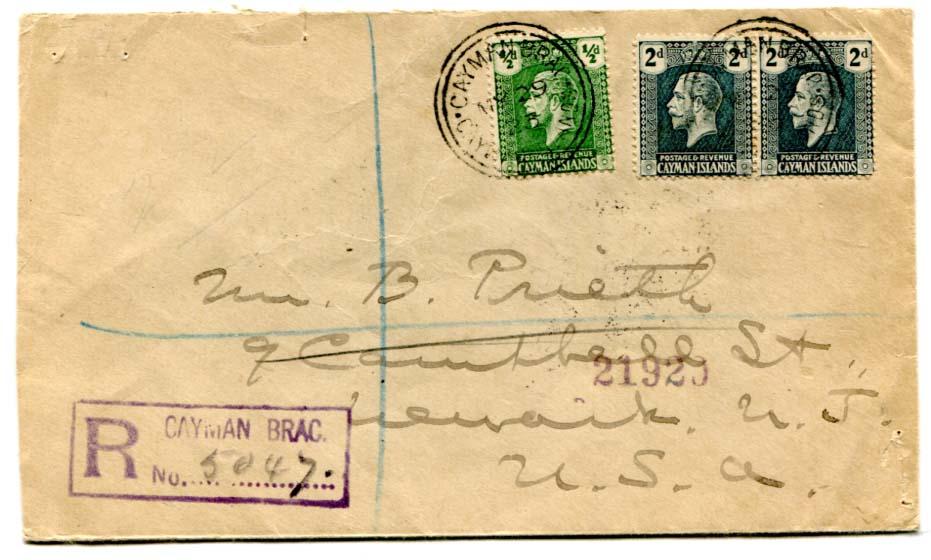 CAYMAN BRAC
½d ½d
POSTAGE & REVENUE
CAYMAN ISLANDS
2d 2d
POSTAGE & REVENUE
CAYMAN ISLANDS
2d 2d
POSTAGE & REVENUE
CAYMAN ISLANDS
Mr. B. Prieth
9 Campbell St.,
21920
Newark. N. J.
U. S. A.
R
CAYMAN BRAC.
No. 5047.